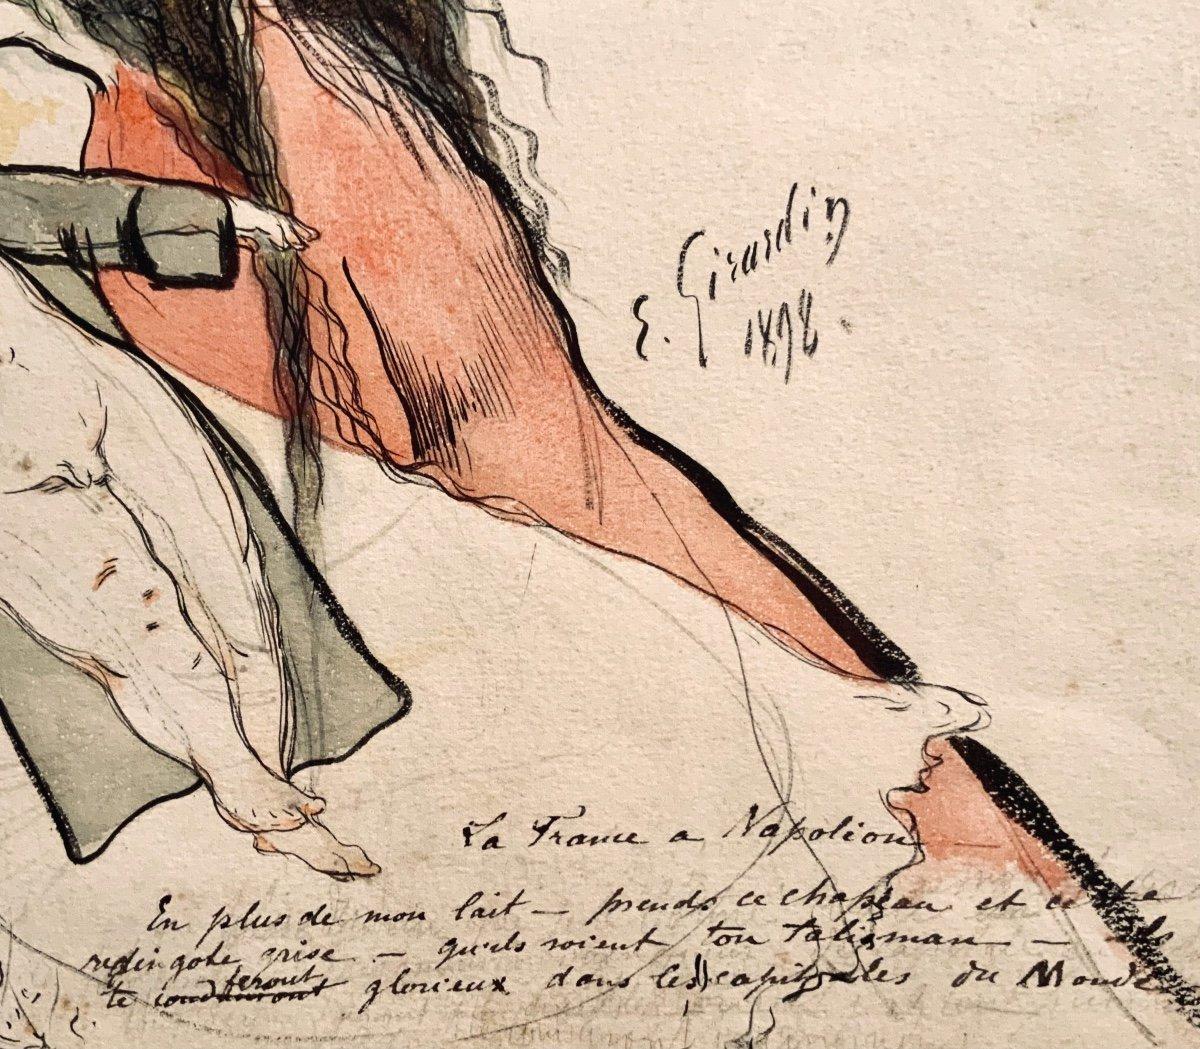 E. Girardin
1898.
La France a Napoléon —
En plus de mon lait — prends ce chapeau et cette
redingote grise — qu'ils soient ton talisman — ils
feront
te conduiront glorieux dans les capitales du Monde